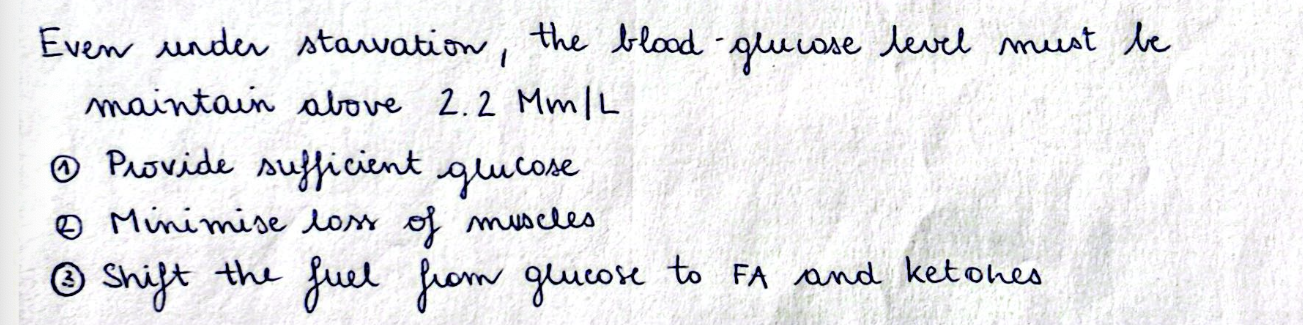 Even under starvation, the blood-glucose level must be
maintain above 2.2 Mm/L
① Provide sufficient glucose
② Minimise loss of muscles
③ Shift the fuel from glucose to FA and ketones